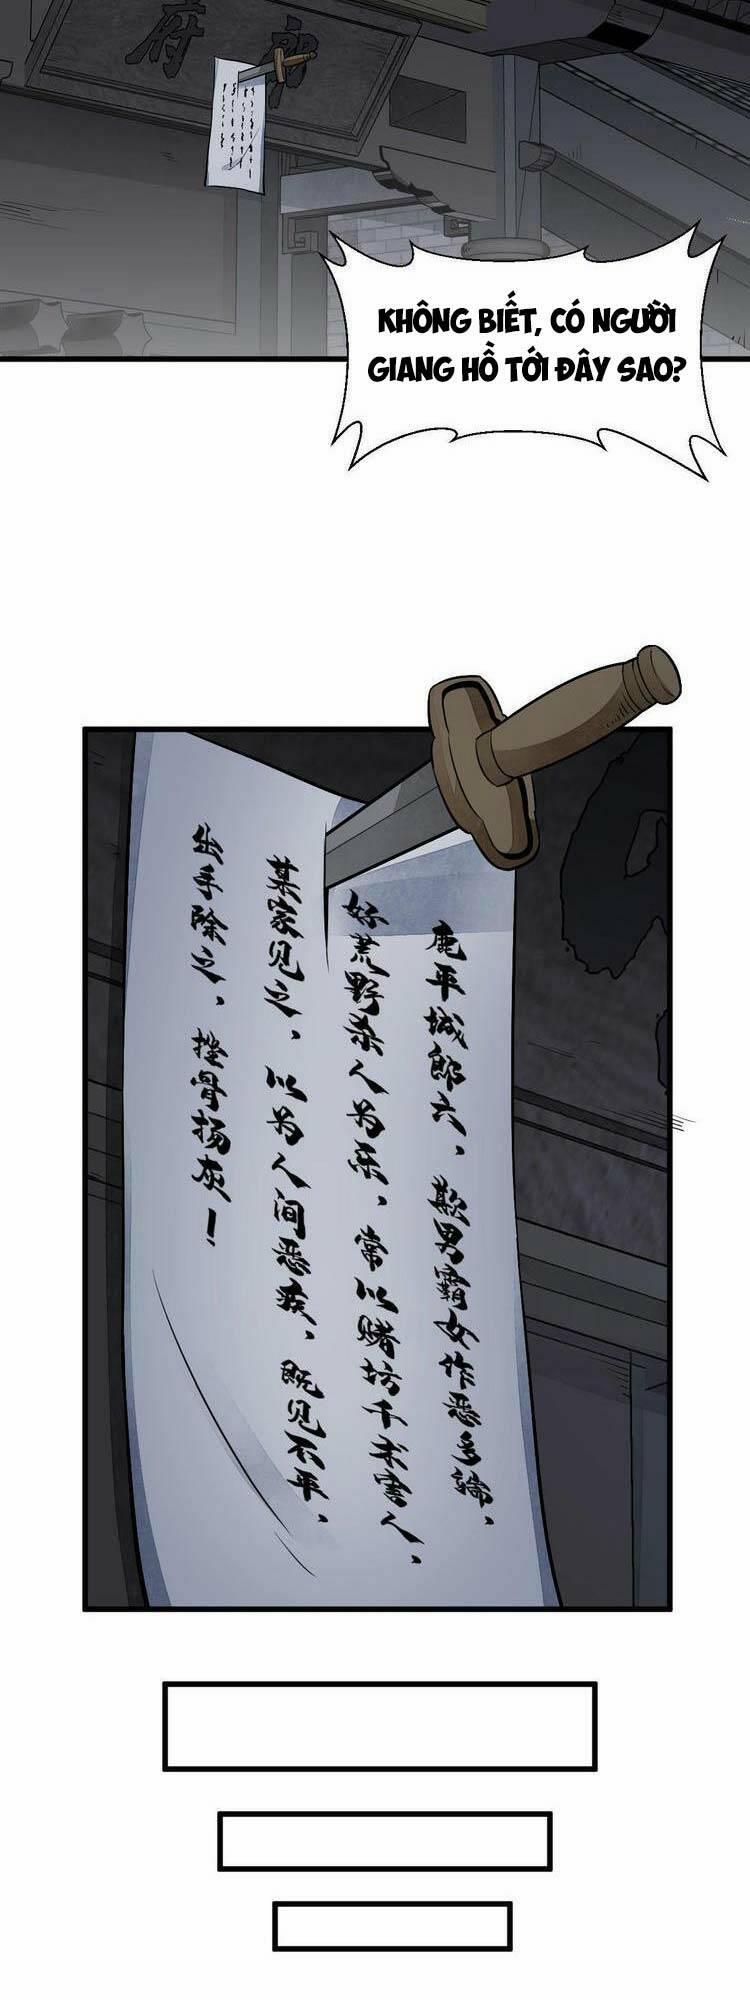 郎府
KHÔNG BIẾT, CÓ NGƯỜI
GIANG HỒ TỚI ĐÂY SAO?
鹿平城郎六，欺男霸女作恶多端，
好荒野杀人为乐，常以赌坊千术害人，
某家见之，以为人间恶疾，既见不平，
出手除之，挫骨扬灰！